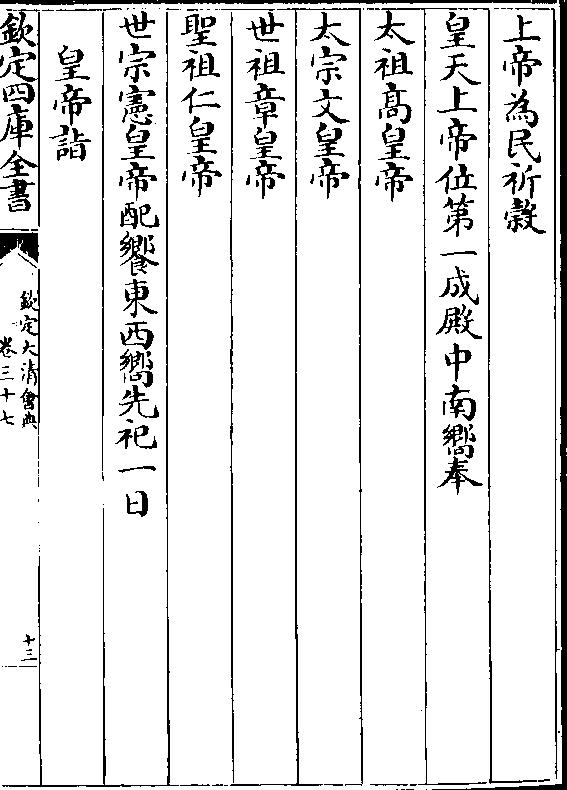 上帝為民祈穀
皇天上帝位第一成殿中南嚮奉
太祖高皇帝
太宗文皇帝
世祖章皇帝
聖祖仁皇帝
世宗憲皇帝配饗東西嚮先祀一日
皇帝詣
欽定四庫全書
欽定大清會典
卷三十七
十三